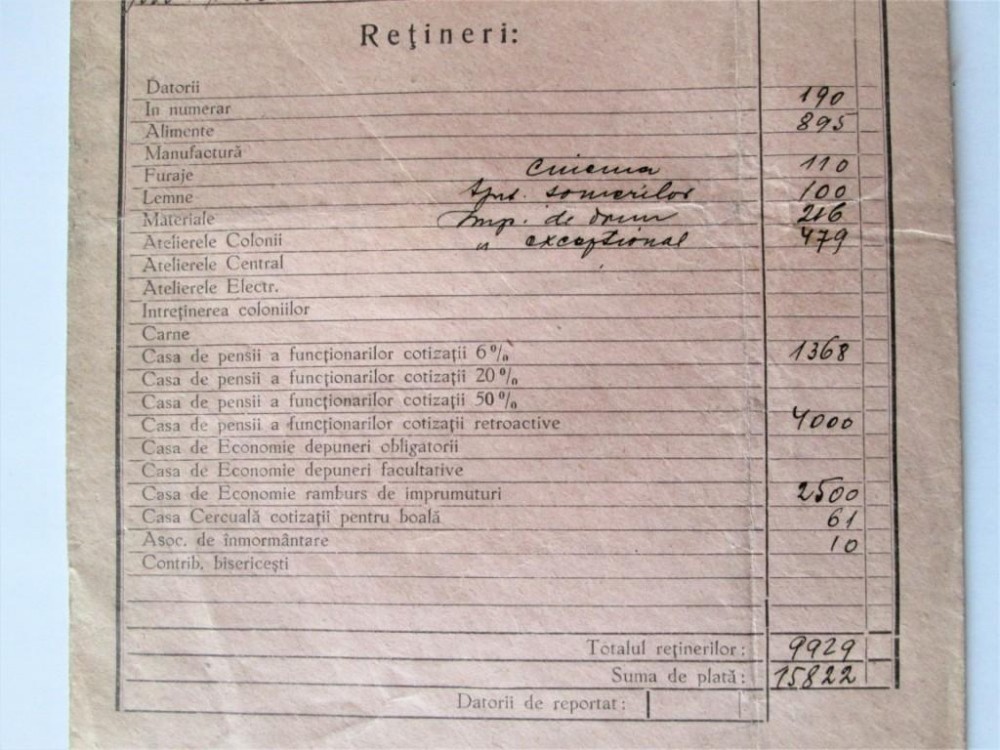 Reţineri:
Datorii
In numerar 190
Alimente 895
Manufactură
Furaje Cinema 110
Lemne Ajut. somerilor 100
Materiale Imp. de drum 216
Atelierele Colonii " excepţional 479
Atelierele Central
Atelierele Electr.
Intreţinerea coloniilor
Carne
Casa de pensii a funcţionarilor cotizaţii 6% 1368
Casa de pensii a funcţionarilor cotizaţii 20%
Casa de pensii a funcţionarilor cotizaţii 50%
Casa de pensii a funcţionarilor cotizaţii retroactive 4000
Casa de Economie depuneri obligatorii
Casa de Economie depuneri facultative
Casa de Economie ramburs de imprumuturi 2500
Casa Cercuală cotizaţii pentru boală 61
Asoc. de înmormântare 10
Contrib. bisericeşti
Totalul reţinerilor: 9929
Suma de plată: 15822
Datorii de reportat: